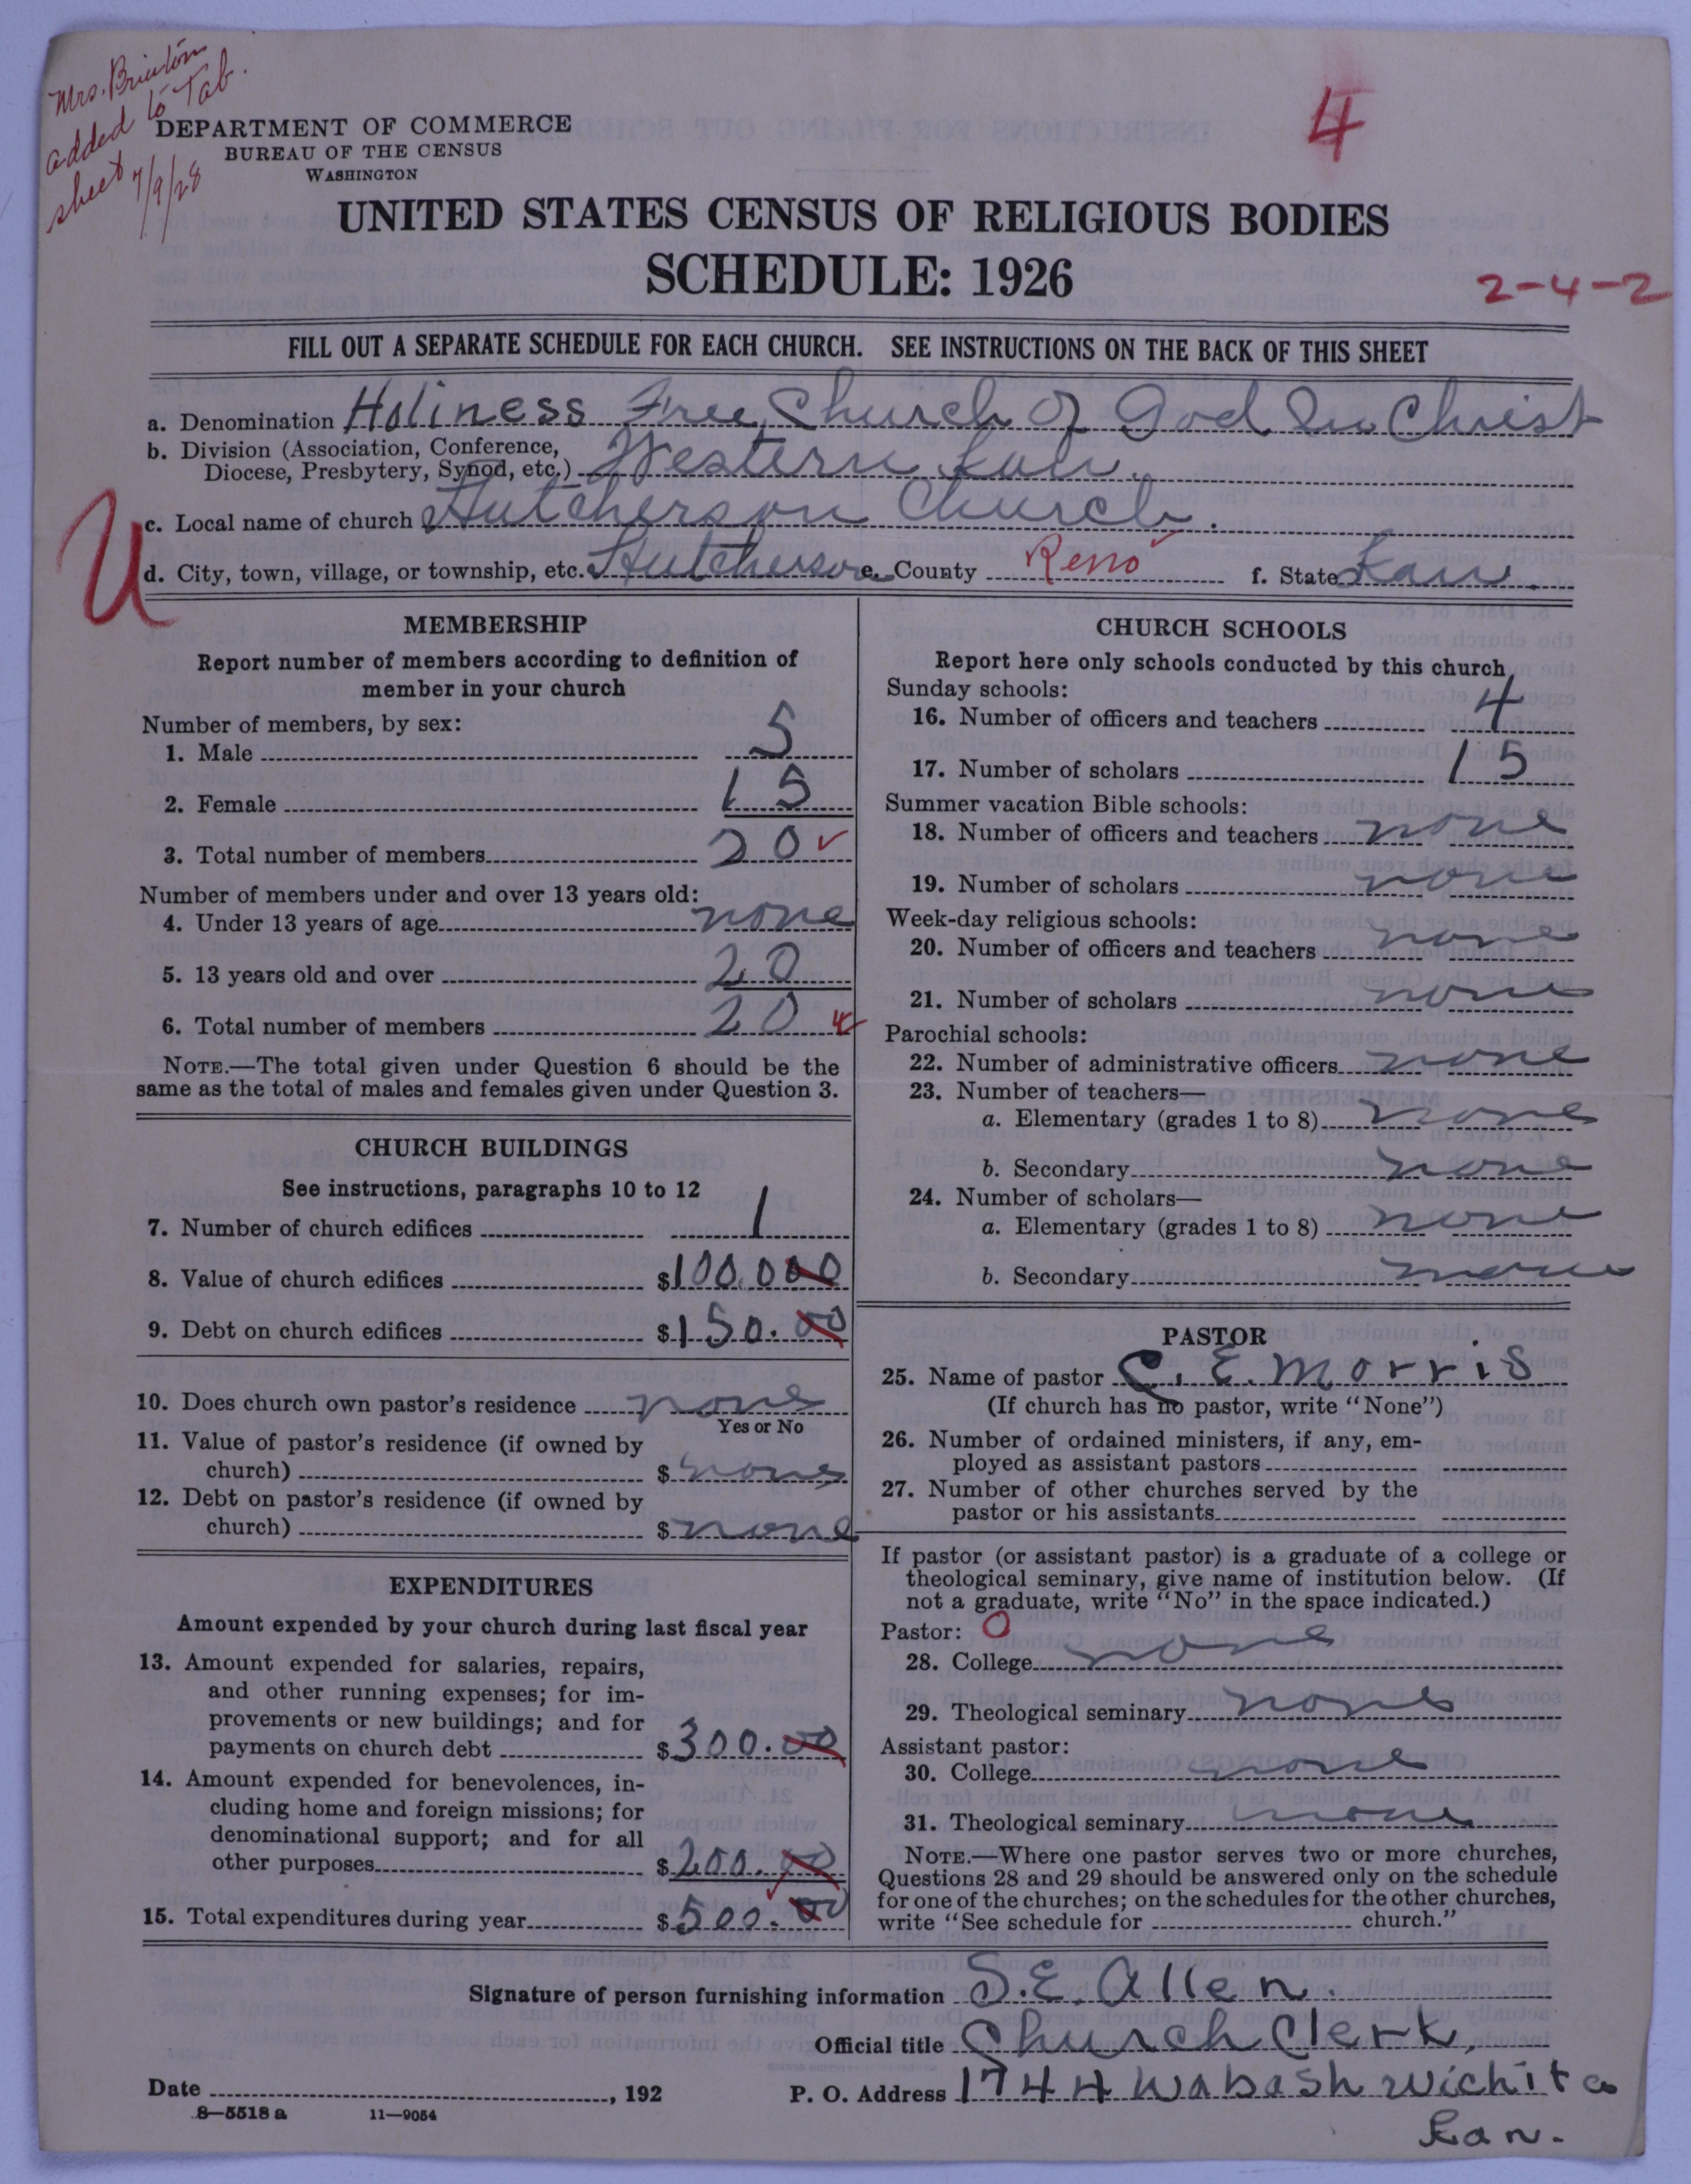 Mrs. Brinton
added to Tab.
sheet 7/9/28
4
DEPARTMENT OF COMMERCE
BUREAU OF THE CENSUS
WASHINGTON
UNITED STATES CENSUS OF RELIGIOUS BODIES
SCHEDULE: 1926
2-4-2
FILL OUT A SEPARATE SCHEDULE FOR EACH CHURCH. SEE INSTRUCTIONS ON THE BACK OF THIS SHEET
a. Denomination Holiness Free Church Of God In Christ
b. Division (Association, Conference,
Diocese, Presbytery, Synod, etc.) Western Kan.
U
c. Local name of church Hutcherson Church.
d. City, town, village, or township, etc. Hutcherson e. County Reno f. State Kan.
MEMBERSHIP
Report number of members according to definition of
member in your church
Number of members, by sex:
1. Male 5
2. Female 15
3. Total number of members 20 ✓
Number of members under and over 13 years old:
4. Under 13 years of age none
5. 13 years old and over 20
6. Total number of members 20
NOTE.—The total given under Question 6 should be the
same as the total of males and females given under Question 3.
CHURCH BUILDINGS
See instructions, paragraphs 10 to 12
7. Number of church edifices 1
8. Value of church edifices $100.000
9. Debt on church edifices $150.00
10. Does church own pastor's residence none
Yes or No
11. Value of pastor's residence (if owned by
church) $ none
12. Debt on pastor's residence (if owned by
church) $ none
EXPENDITURES
Amount expended by your church during last fiscal year
13. Amount expended for salaries, repairs,
and other running expenses; for im-
provements or new buildings; and for
payments on church debt $300.00
14. Amount expended for benevolences, in-
cluding home and foreign missions; for
denominational support; and for all
other purposes $200.00
15. Total expenditures during year $500.00
CHURCH SCHOOLS
Report here only schools conducted by this church
Sunday schools:
16. Number of officers and teachers 4
17. Number of scholars 15
Summer vacation Bible schools:
18. Number of officers and teachers none
19. Number of scholars none
Week-day religious schools:
20. Number of officers and teachers none
21. Number of scholars none
Parochial schools:
22. Number of administrative officers none
23. Number of teachers—
a. Elementary (grades 1 to 8) none
b. Secondary none
24. Number of scholars—
a. Elementary (grades 1 to 8) none
b. Secondary none
PASTOR
25. Name of pastor C. E. Morris
(If church has no pastor, write "None")
26. Number of ordained ministers, if any, em-
ployed as assistant pastors
27. Number of other churches served by the
pastor or his assistants
If pastor (or assistant pastor) is a graduate of a college or
theological seminary, give name of institution below. (If
not a graduate, write "No" in the space indicated.)
Pastor: O
28. College none
29. Theological seminary none
Assistant pastor:
30. College none
31. Theological seminary none
NOTE.—Where one pastor serves two or more churches,
Questions 28 and 29 should be answered only on the schedule
for one of the churches; on the schedules for the other churches,
write "See schedule for church."
Signature of person furnishing information S. E. Allen.
Official title Church Clerk,
Date , 192 P. O. Address 1744 Wabash Wichita
Kan.
8—5518 a 11—9054